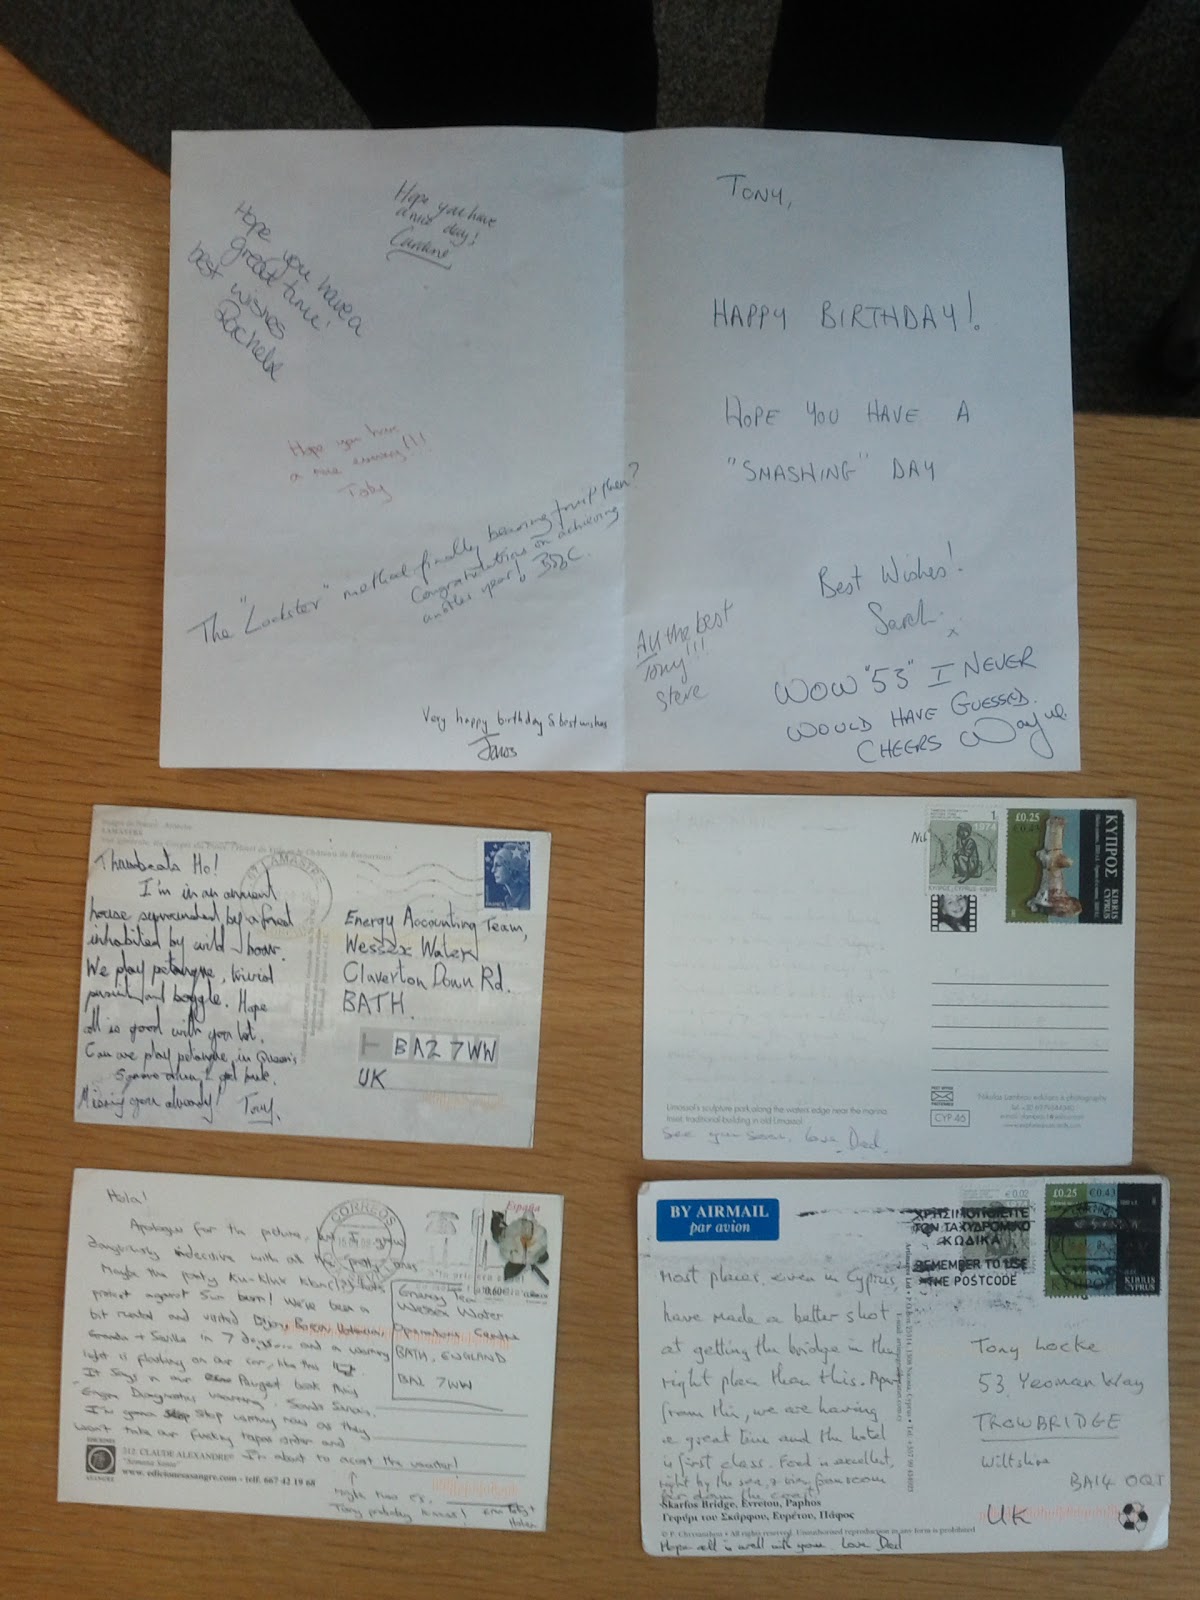 Hope you have
a nice day!
Caroline
Hope you have a
great time!
best wishes
Rachel
Hope you have
a nice evening!!!
Toby
The "Lockster" method finally bearing fruit then?
Congratulations on achieving
another year!
Very happy birthday & best wishes
TONY,
HAPPY BIRTHDAY!
HOPE YOU HAVE A
"SMASHING" DAY
Best Wishes!
Sarah x
All the best
Tony!!!
Steve
WOW "53" I NEVER
WOULD HAVE GUESSED.
CHEERS Wayne
LAMASTRE
Thrumbeats Ho!
I'm in an ancient
house surrounded by a forest
inhabited by wild boar.
We play petanque, trivial
pursuit and boggle. Hope
all is good with you lot.
Can we play petanque in Queen's
Square when I get back.
Missing you already! Tony.
FRANCE
Energy Accounting Team,
Wessex Water
Claverton Down Rd.
BATH.
BA2 7WW
UK
1974
£0.25
€0.43
ΚΥΠΡΟΣ
KIBRIS
CYPRUS
CYP 46
Limassol's sculpture park along the waters edge near the marina
Inset: traditional building in old Limassol
See you soon, love Dad.
Hola!
Apologies for the picture,
dangerously indecisive with all the pretty ones
Maybe the pointy Ku-Klux Klan(?) hats
protect against Sun burn! We've been a
bit
Granada + Seville in 7 days... and a warning
light is flashing on our car, like this
It says in our Peugeot book
I'm gonna stop writing now as they
won't take our fucking tapas order and
I'm about to accost the waiter!
Maybe two
Tony probably knows!
CORREOS
España
Energy Team
Wessex Water
Operations Centre
BATH, ENGLAND
BA2 7WW
EDICIONES
212. CLAUDE ALEXANDRE®
"Semana Santa"
www.edicionesasangre.com - telf. 667 42 19 68
BY AIRMAIL
par avion
€0,02
£0.25 €0.43
ΧΡΗΣΙΜΟΠΟΙΕΙΤΕ
ΤΟΝ ΤΑΧΥΔΡΟΜΙΚΟ
ΚΩΔΙΚΑ
REMEMBER TO USE
THE POSTCODE
KIBRIS
CYPRUS
Most places, even in Cyprus,
have made a better shot
at getting the bridge in the
right place than this. Apart
from this, we are having
a great time and the hotel
is first class. Food is excellent,
right by the sea, & view from room
far down the coast
Tony Locke
53, Yeoman Way
TROWBRIDGE
Wiltshire
BA14 0QJ
UK
Skarfos Bridge, Evretou, Paphos
Γεφύρι του Σκάρφου, Ευρέτου, Πάφος
Hope all is well with you. Love Dad